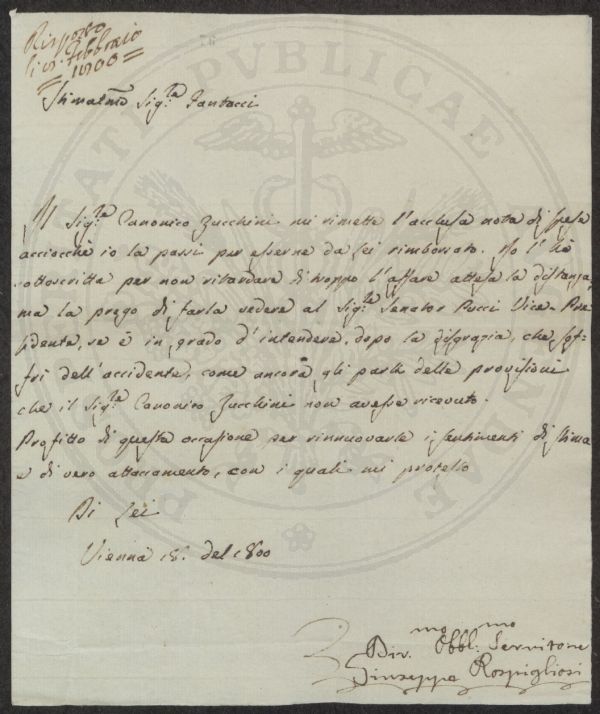 Risposto
li 15. Febbraio
1800
Stimatmo Sigre Fantacci
Il Sigre Canonico Zucchini mi rimette l'acclusa nota di spese
acciocchè io la passi per esserne da Lei rimborsato. Io l'hò
sottoscritta per non ritardare di troppo l'affare attesa la distanza,
ma la prego di farla vedere al Sigre Senator Pucci Vice-Pre-
sidente, se è in grado d'intendere, dopo la disgrazia, che sof-
frì dell'accidente, come ancora gli parli delle provisioni
che il Sigre Canonico Zucchini non avesse ricevuto.
Profitto di questa occasione per rinnuovarle i sentimenti di stima
e di vero attaccamento, con i quali mi protesto
Di Lei
Vienna 18. del 1800
Div.mo Obbl.mo Servitore
Giuseppe Rospigliosi